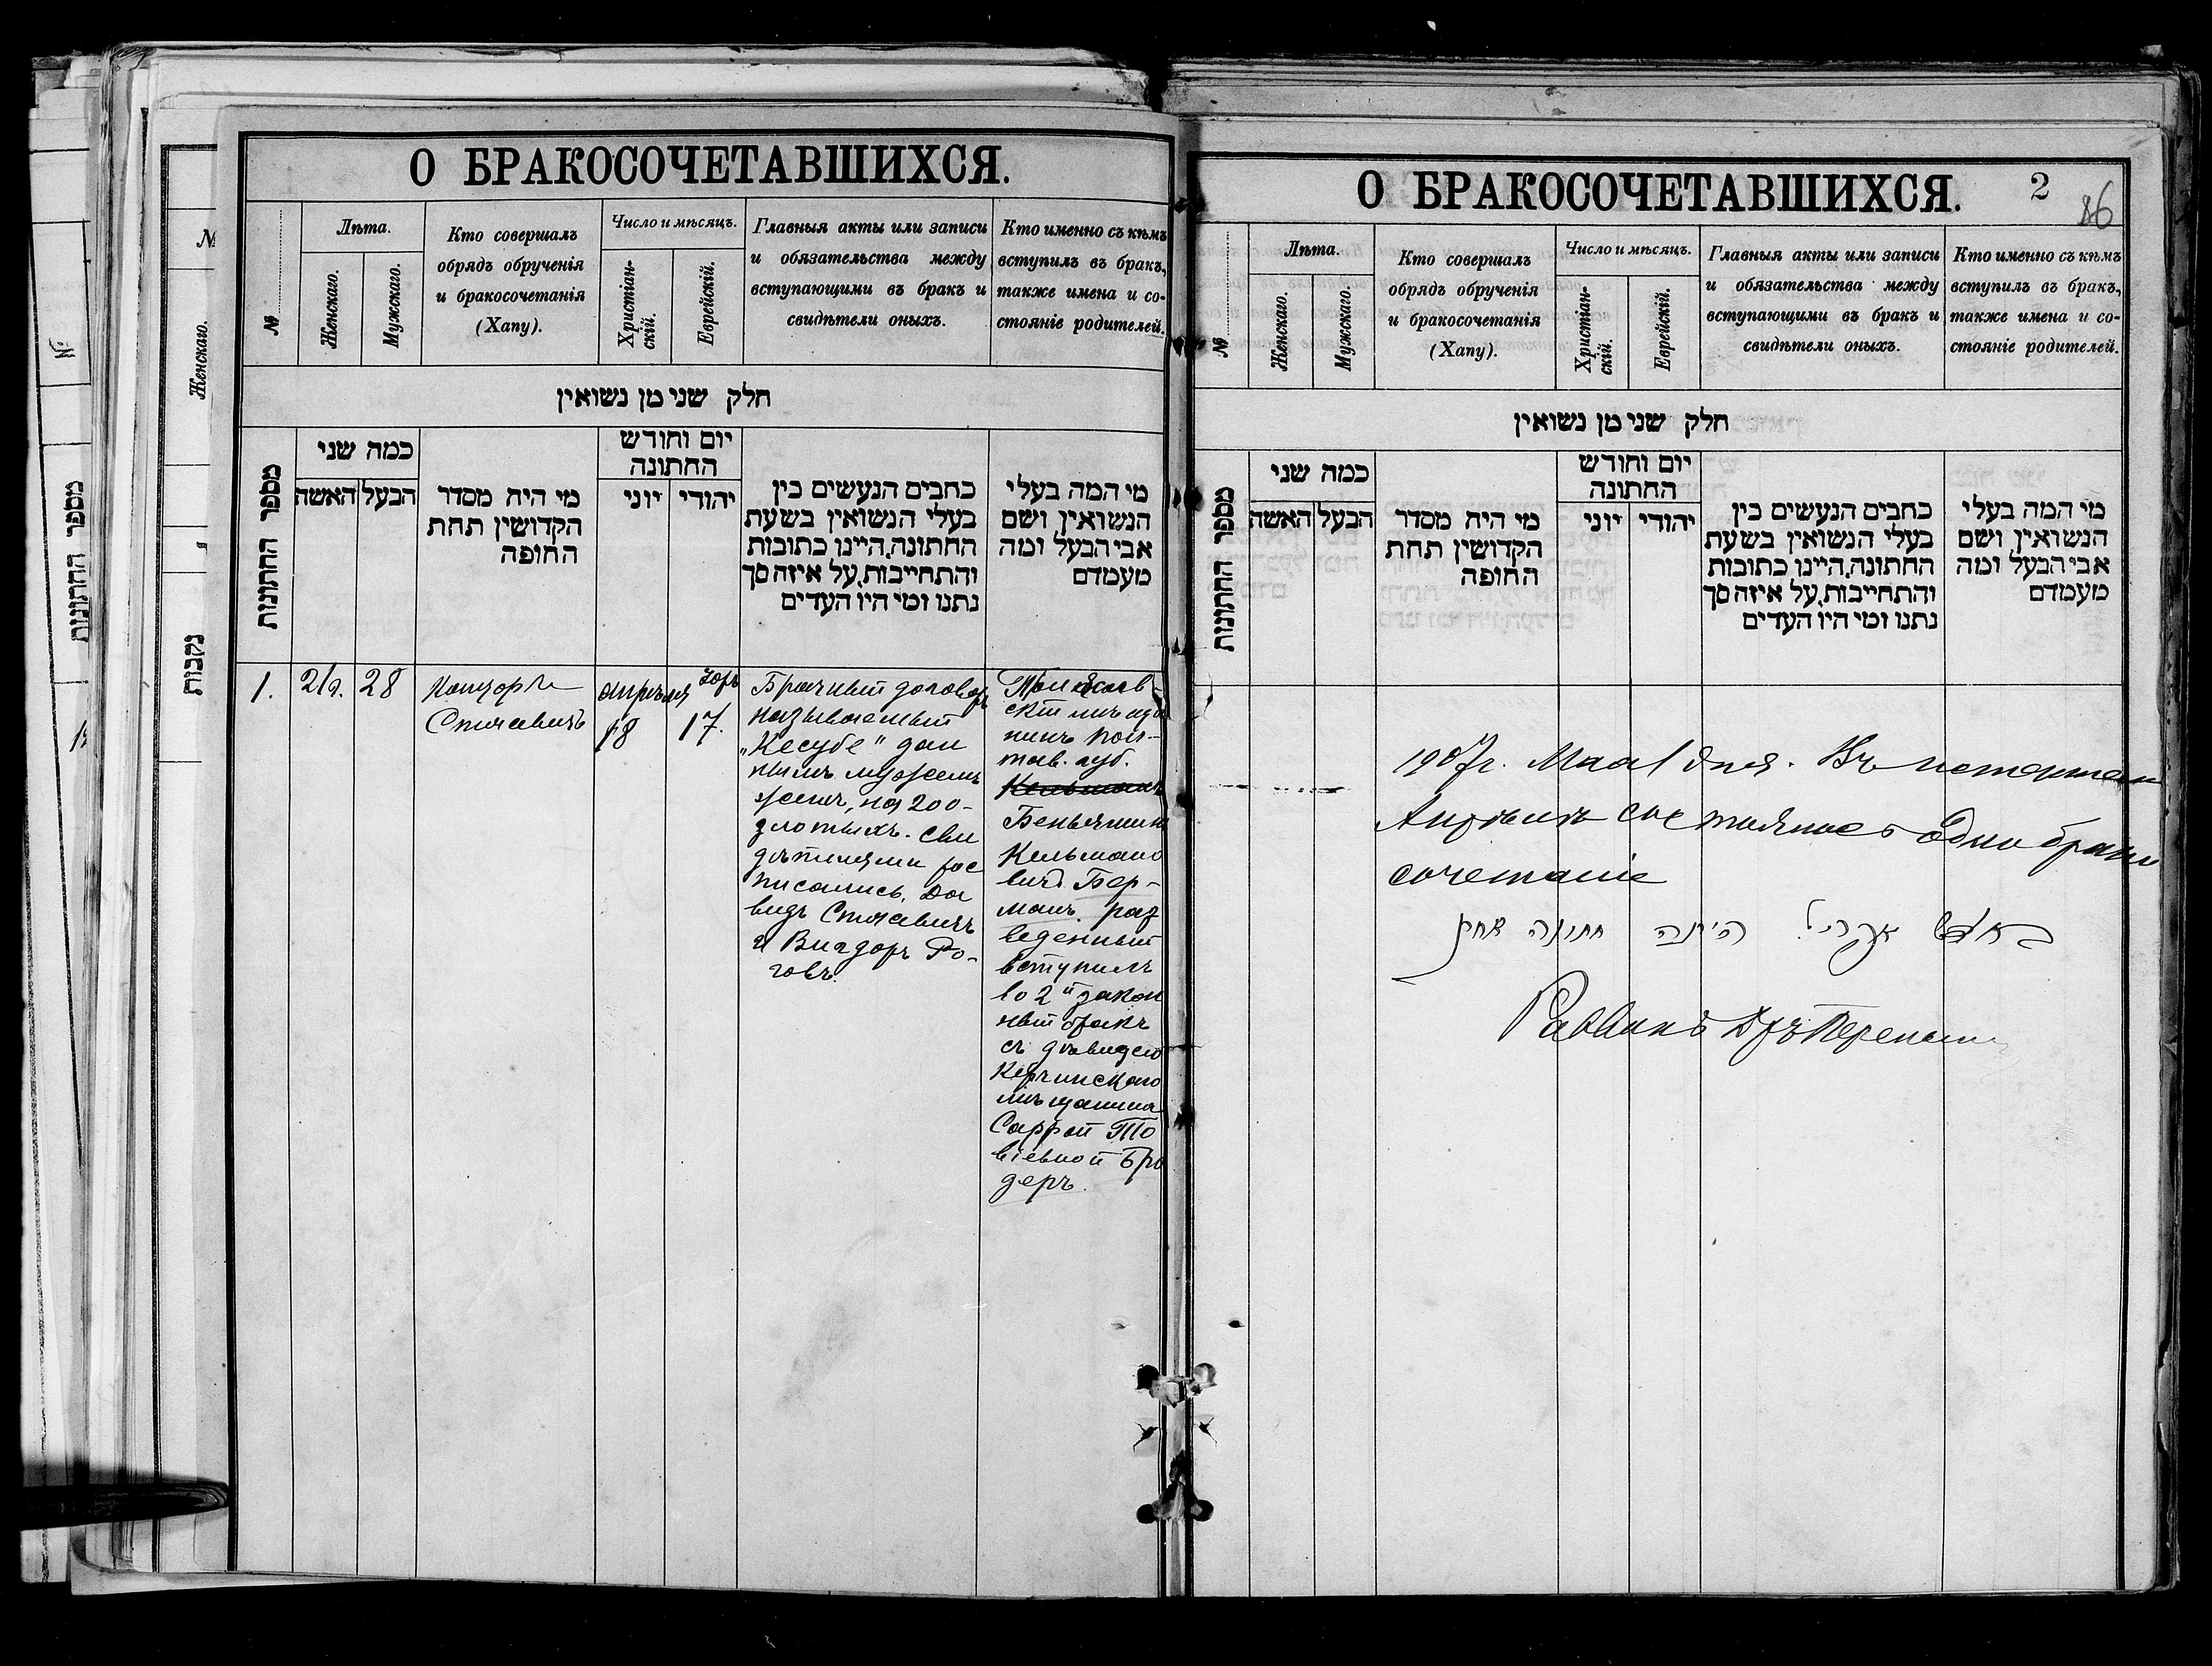 О БРАКОСОЧЕТАВШИХСЯ.
№
Лѣта.
Женскаго.
Мужскаго.
Кто совершалъ
обрядъ обрученія
и бракосочетанія
(Хапу).
Число и мѣсяцъ.
Христіан-
скій.
Еврейскій.
Главныя акты или записи
и обязательства между
вступающими въ бракъ и
свидѣтели оныхъ.
Кто именно съ кѣмъ
вступилъ въ бракъ,
также имена и со-
стояніе родителей.
חלק שני מן נשואין
מספר החתונות
כמה שני
האשה
הבעל
מי היה מסדר
הקדושין תחת
החופה
יום וחודש
החתונה
יוני
יהודי
כתבים הנעשים בין
בעלי הנשואין בשעת
החתונה, היינו כתובות
והתחייבות, על איזה סך
נתנו ומי היו העדים
מי המה בעלי
הנשואין ושם
אבי הבעל ומה
מעמדם
1.
21
28
Спичавичъ
апрѣля
18
17.
Брачный договоръ
называемый
„Кесубе" дан
нымъ мужемъ
женѣ, на 200-
злотыхъ. Сви
дѣтелями рос
писались, Да
видъ Спичавичъ
и Вигдоръ Ро-
говъ.
мѣща
нинъ Пол-
тав. губ.
Беньяминъ
Кельмано
вичъ Бер-
манъ. раз
веденный
вступилъ
во 2й закон
ный бракъ
съ дѣвицею
Керчинскаго
мѣщанина
Саррой То
віевной Бро
деръ.
№
Женскаго.
מספר החתונות
נקבות
О БРАКОСОЧЕТАВШИХСЯ.
2
86
№
Лѣта.
Женскаго.
Мужскаго.
Кто совершалъ
обрядъ обрученія
и бракосочетанія
(Хапу).
Число и мѣсяцъ.
Христіан-
скій.
Еврейскій.
Главныя акты или записи
и обязательства между
вступающими въ бракъ и
свидѣтели оныхъ.
Кто именно съ кѣмъ
вступилъ въ бракъ,
также имена и со-
стояніе родителей.
חלק שני מן נשואין
מספר החתונות
כמה שני
האשה
הבעל
מי היה מסדר
הקדושין תחת
החופה
יום וחודש
החתונה
יוני
יהודי
כתבים הנעשים בין
בעלי הנשואין בשעת
החתונה, היינו כתובות
והתחייבות, על איזה סך
נתנו ומי היו העדים
מי המה בעלי
הנשואין ושם
אבי הבעל ומה
מעמדם
1907г. Мая 1 дня. Въ истекшем
Апрѣлѣ состоялось одно брако
сочетаніе
אפריל היתה חתונה אחת
Раввинъ Дръ